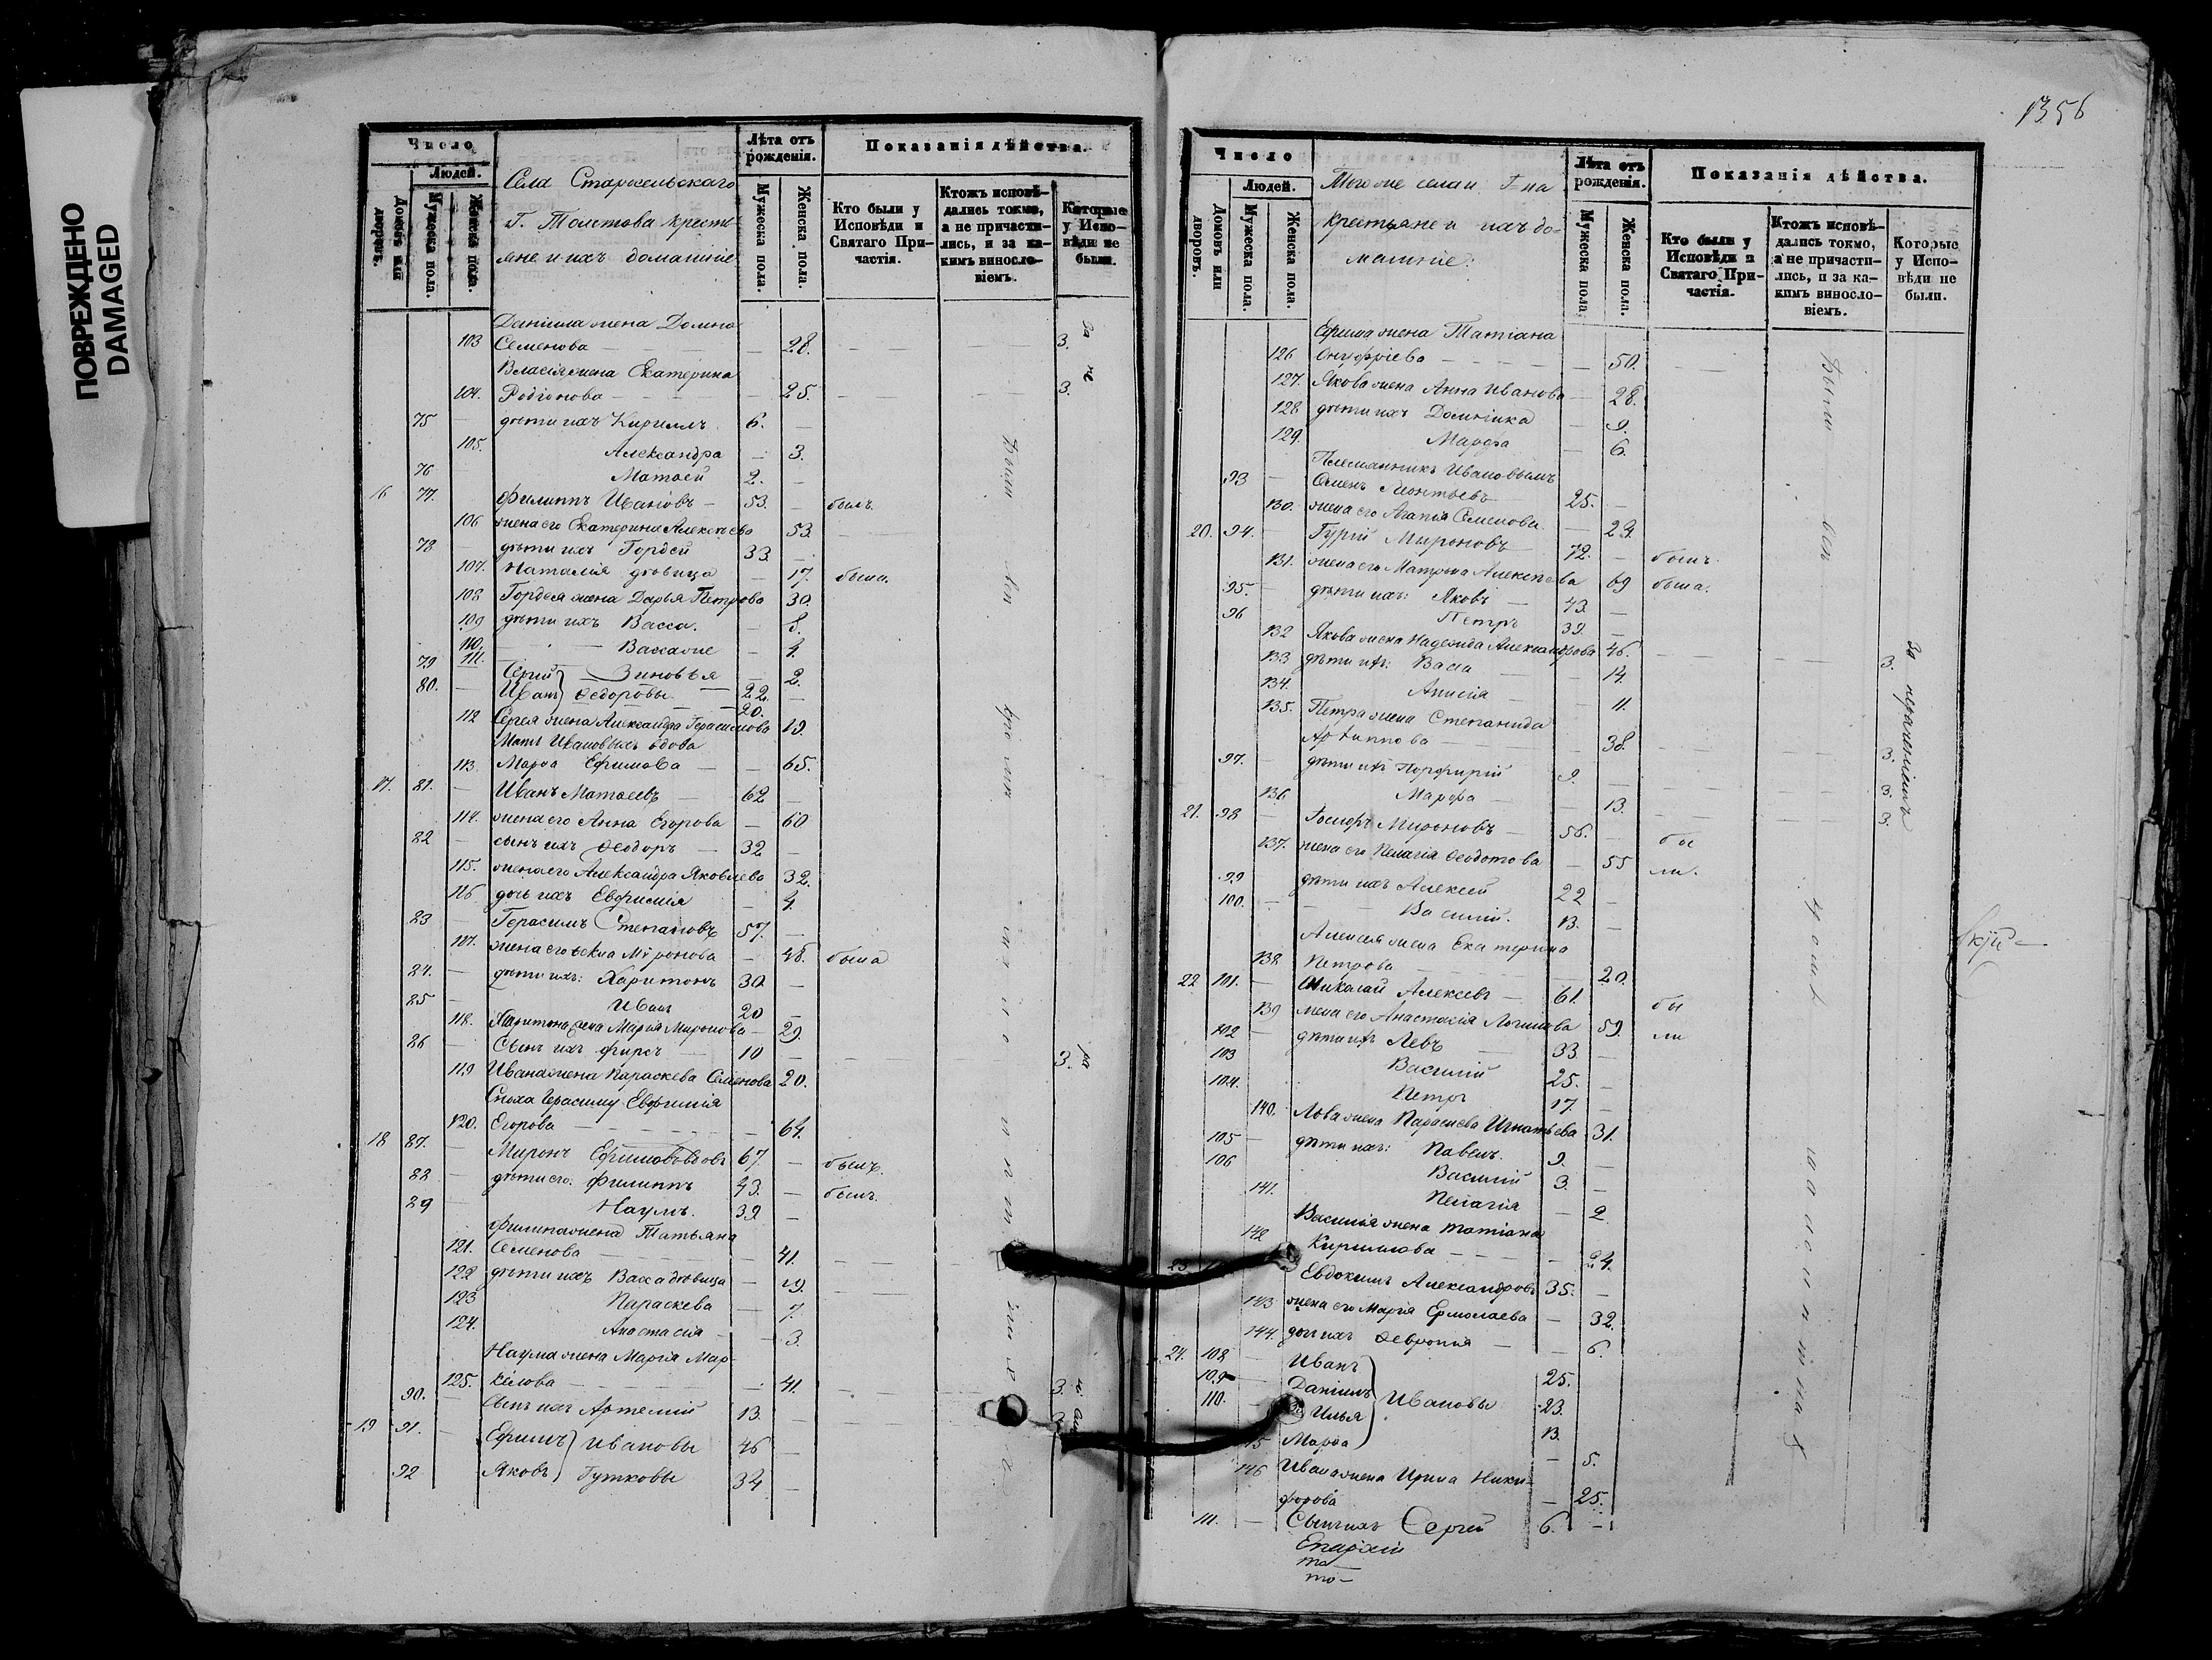 ПОВРЕЖДЕНО
DAMAGED
Число
Людей.
Домовъ или дворовъ.
Мужеска пола.
Женска пола.
Села Старосельскаго
Г. Толстова кресть-
яне и ихъ домашніе
Лѣта отъ рожденія.
Мужеска пола.
Женска пола.
Показанія дѣйства.
Кто были у Исповѣди и Святаго Причастія.
Ктожъ исповѣдались токмо, а не причастились, и за какимъ винословіемъ.
Которые у Исповѣди не были.
Даніила жена Домна
103 Семенова — 28. 3.
Власія жена Екатерина
104. Родіонова — 25. 3.
75 — дѣти ихъ Кириллъ 6. —
105. Александра — 3.
76 Матѳей 2. —
16 77. Филиппъ Ивановъ — 53. — былъ.
106 жена его Екатерина Алексѣева 53.
78 — дѣти ихъ Гордей 33. —
107. Наталія дѣвица — 17. была.
108 Гордея жена Дарья Петрова 30.
109 дѣти ихъ Васса. — 8.
110. — 4.
111. Зиновья — 2.
79 Сергій
80. — Иванъ } Ѳедоровы — 22. 20. —
112 Сергея жена Александра Герасимова 19.
Мать Ивановыхъ вдова
113. Марѳа Ефимова — — 65.
17. 81. — Иванъ Матвеевъ — 62 —
114. жена его Анна Егорова — 60
82 — сынъ ихъ Ѳеодоръ — 32 —
115. жена его Александра Яковлева 32.
116 дочь ихъ Евфимія — 4.
83 — Герасимъ Степановъ 57. —
117. жена его Ѳекла Миронова — 48. была
84. — дѣти ихъ: Харитонъ 30 —
85 — Иванъ 20 —
118. Харитона жена Марья Миронова — 29.
86 — Сынъ ихъ Фирсъ — 10 — 3.
119 Ивана жена Параскева Семенова 20.
Сноха Герасиму Евфимія
120. Егорова — 64.
18 87. — Миронъ Ефимовъ вдовъ 67. — былъ.
88 — дѣти его: Филиппъ 43. — былъ.
89 — Наумъ. 39. —
Филиппа жена Татьяна
121. Семенова — 41.
122 дѣти ихъ Васса дѣвица — 19.
123 Параскева — 7.
124. Анастасія — 3.
Наума жена Марѳа Мар-
125. келова — 41. 3.
90. — Сынъ ихъ Артемій 13. 3.
19 91. — Ефимъ } Ивановы 46 —
92 Яковъ } Гутковы 34 —
1356
Число
Людей.
Домовъ или дворовъ.
Мужеска пола.
Женска пола.
Того же села и Г-на
крестьяне и ихъ до-
машніе:
Лѣта отъ рожденія.
Мужеска пола.
Женска пола.
Показанія дѣйства.
Кто были у Исповѣди и Святаго Причастія.
Ктожъ исповѣдались токмо, а не причастились, и за какимъ винословіемъ.
Которые у Исповѣди не были.
Ефима жена Татіана
126 Онуфріева — 50.
127. Якова жена Анна Иванова — 28.
128 дѣти ихъ Домникa — 9.
129. Марѳа — 6.
Племянникъ Ивановымъ
93 — Семенъ Леонтьевъ 25. —
130. жена его Агапія Семенова — 23.
20. 94. — Гурій Мироновъ — 72. — былъ.
131. жена его Матрена Алексѣева 69 была.
95. — дѣти ихъ: Яковъ — 43. —
96 Петръ 39. —
132 Якова жена Надежда Александрова 46. 3.
133 дѣти ихъ: Васса — 14.
134. Анисія — 11.
135. Петра жена Степанида
Архиппова — 38. 3.
97. — дѣти ихъ Порфирій 9. — 3.
136 Марфа — 13. 3.
21. 98 — Іосифъ Мироновъ — 56. — бы
137. жена его Пелагія Ѳеодотова — 55 ли.
99 дѣти ихъ Алексей 22 —
100. — Василій. 13. —
Алексея жена Екатерина
138 Петрова — 20.
22 101. — Николай Алексевъ — 61. бы
139 жена его Анастасія Логинова 59. ли
102 — дѣти ихъ Левъ 33. —
103 Василій 25. —
104. Петръ 17. —
140. Льва жена Параскева Игнатьева 31.
105 — дѣти ихъ: Павелъ. 9. —
106 Василій 3. —
141. Пелагія — 2
Василія жена Татіана
142 Кириллова — 24.
23 Евдокимъ Александровъ 35. —
143 жена его Марія Ермолаева — 32.
144. дочь ихъ Ѳевронія — 6.
24. 108 — Иванъ 25.
109 — Даніилъ } Ивановы 23.
110. — Илья 13.
Марѳа — 5.
146 Ивана жена Ирина Ники-
форова — 25.
111. — Сынъ ихъ Сергій 6. —
за
не
Были
Были
всѣ
за отлучкою
Епархіи